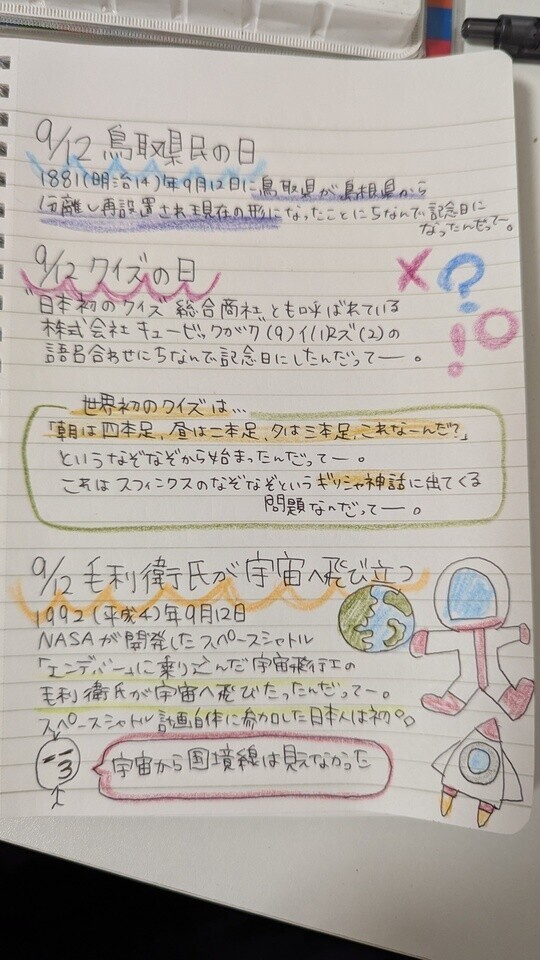 9/12 鳥取県民の日
1881(明治14)年9月12日に鳥取県が島根県から
分離し再設置され現在の形になったことにちなんで記念日に
なったんだってー。
9/12 クイズの日
"日本初のクイズ"総合商社とも呼ばれている
株式会社キュービックがク(9)イ(1)ズ(2)の
語呂合わせにちなんで記念日にしたんだってー。
× ? ! ○
世界初のクイズは…
「朝は四本足、昼は二本足、夕は三本足、これなーんだ?」
というなぞなぞから始まったんだってー。
これはスフィンクスのなぞなぞというギリシャ神話に出てくる
問題なんだってー。
9/12 毛利衛氏が宇宙へ飛び立つ
1992(平成4)年9月12日
NASAが開発したスペースシャトル
「エンデバー」に乗り込んだ宇宙飛行士の
毛利衛氏が宇宙へ飛びたったんだってー。
スペースシャトル計画自体に参加した日本人は初。
宇宙から国境線は見えなかった